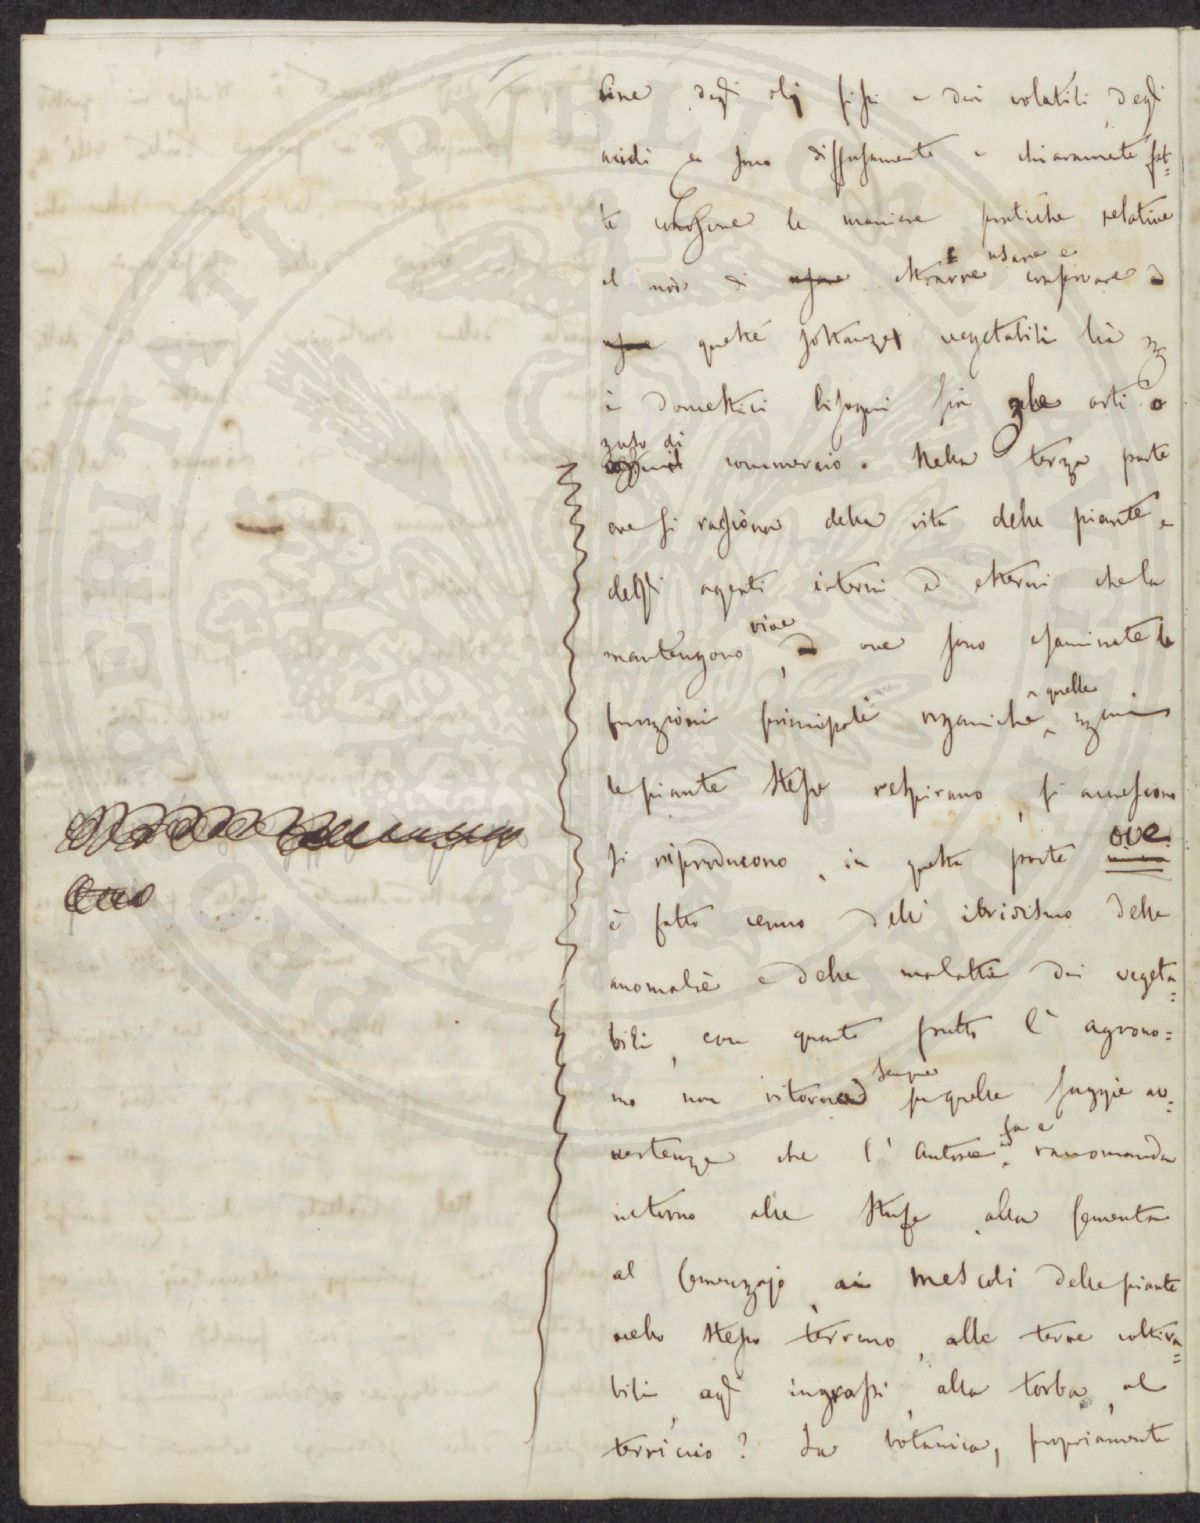 sine degli olj fissi e dei volatili degli
acidi e sono diffusamente e chiaramente fat=
te conoscere le maniere pratiche relative
al modo di usare estrarre usare e conservare ed
usare queste sostanze vegetabili sia
i domestici bisogni sia arti o
uso di commercio. Nella terza parte
ove si ragiona della vita delle piante e
degli agenti interni ed esterni che la
mantengono vive, ed ove sono esaminate le
funzioni principali organiche, e quelle
le piante stesse respirano, si accrescono
si riproducono, in questa parte ove
è fatto cenno dell' ibridismo delle
anomalie e delle malattie dei vegeta=
bili, con quanto frutto l' agrono=
mo non ritornerà sempre su quelle saggie av=
vertenze che l' Autore fa e raccomanda
intorno alle stufe, alla sementa
al semenzajo, ai mescoli delle piante
nello stesso terreno, alle terre coltiva=
bili, agl' ingrassi, alla torba, al
terriccio? La botanica, propriamente
PROBITATI PVBLICAE